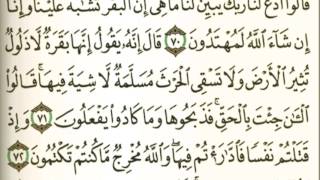 قَالُوا۟ ٱدْعُ لَنَا رَبَّكَ يُبَيِّن لَّنَا مَا هِىَ إِنَّ ٱلْبَقَرَ تَشَٰبَهَ عَلَيْنَا وَإِنَّآ
إِن شَآءَ ٱللَّهُ لَمُهْتَدُونَ ٧٠ قَالَ إِنَّهُۥ يَقُولُ إِنَّهَا بَقَرَةٌ لَّا ذَلُولٌ
تُثِيرُ ٱلْأَرْضَ وَلَا تَسْقِى ٱلْحَرْثَ مُسَلَّمَةٌ لَّا شِيَةَ فِيهَا ۚ قَالُوا۟
ٱلْـَٰٔنَ جِئْتَ بِٱلْحَقِّ ۚ فَذَبَحُوهَا وَمَا كَادُوا۟ يَفْعَلُونَ ٧١ وَإِذْ
قَتَلْتُمْ نَفْسًا فَٱدَّٰرَْٰٔتُمْ فِيهَا ۖ وَٱللَّهُ مُخْرِجٌ مَّا كُنتُمْ تَكْتُمُونَ ٧٢